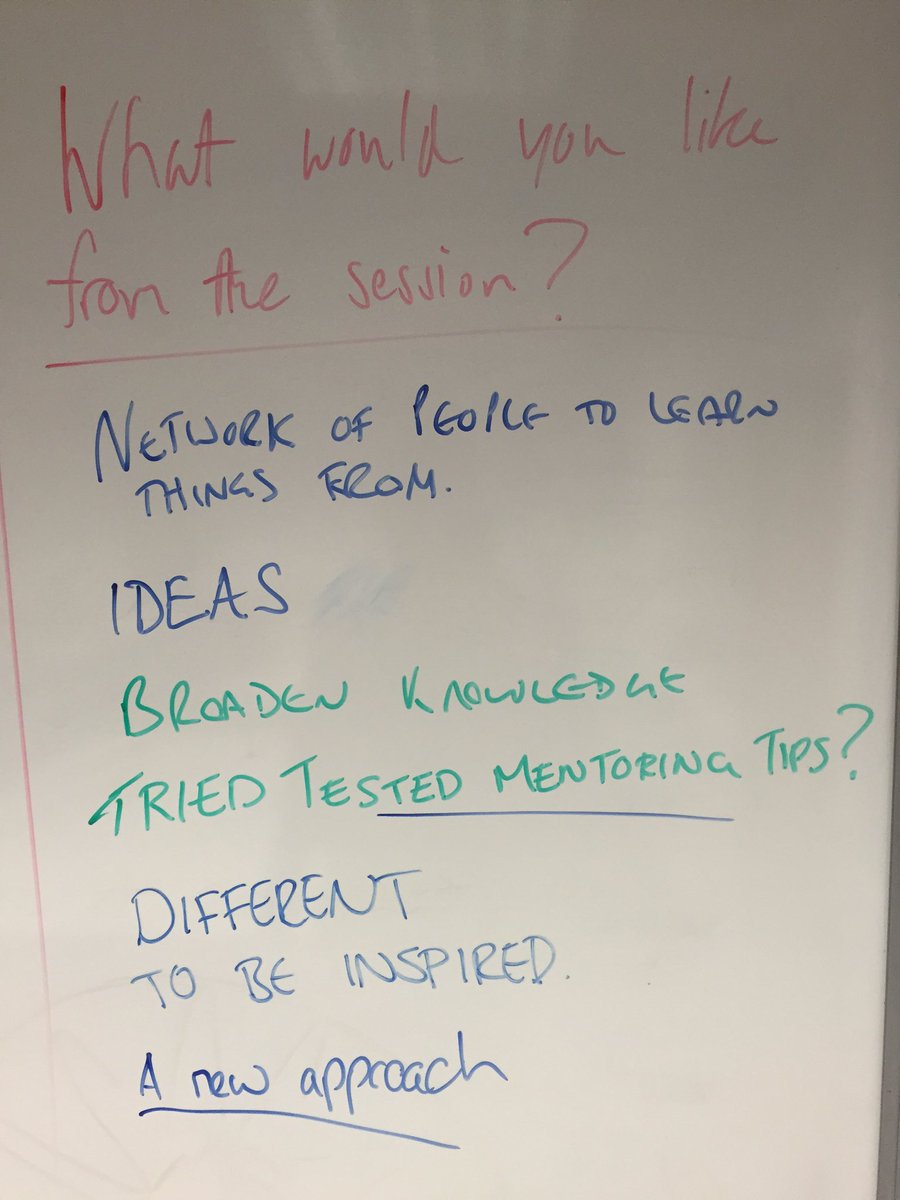 What would you like
from the session?
NETWORK OF PEOPLE TO LEARN
THINGS FROM.
IDEAS
BROADEN KNOWLEDGE
TRIED TESTED MENTORING TIPS?
DIFFERENT
TO BE INSPIRED.
A new approach